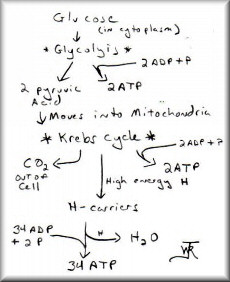 Glucose
(in cytoplasm)
* Glycolysis *
2 ADP + P
2 pyruvic
Acid
2 ATP
Moves into Mitochondria
* Krebs Cycle *
2 ADP + P
CO2
out of
Cell
2 ATP
High energy H
H-carriers
34 ADP
+ 2 P
H
H2O
34 ATP